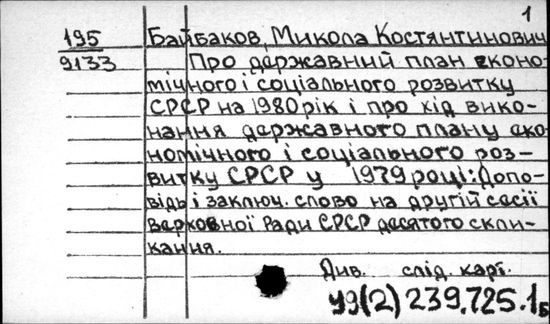 1
195 Байбаков, Микола Костянтинович
9133 Про державний план еконо-
мічного і соціального розвитку
СРСР на 1980 рік і про хід вико-
нання державного плану еко-
номічного і соціального роз-
витку СРСР у 1979 році: Допо-
відь і заключ. слово на другій сесії
Верховної Ради СРСР десятого скли-
кання.
Див. слід. карт.
У9(2)239.725.1Б